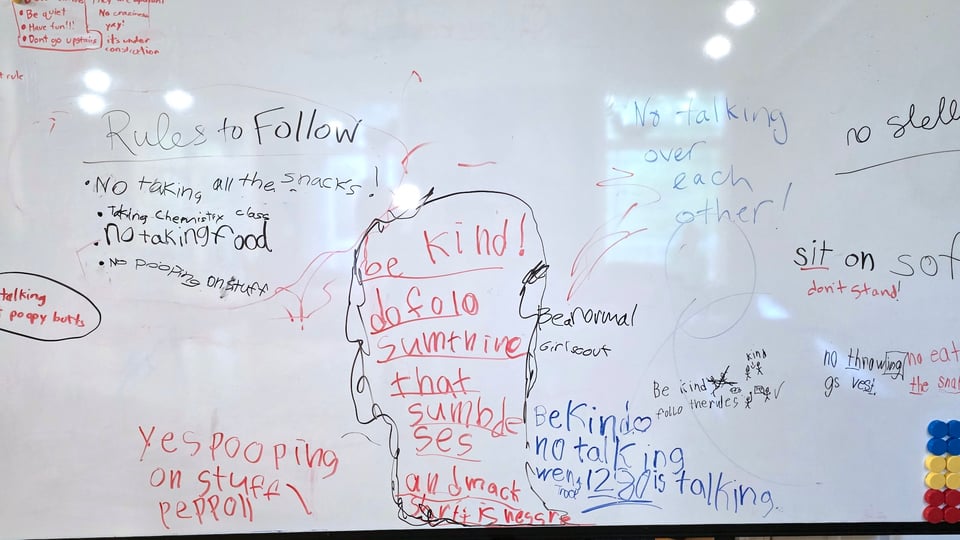 • Be quiet
• Have fun!!!
• Dont go upstairs
They are
No craziness
yay!
it's under
construction
rule
Rules to Follow
• No taking all the snacks!
• Taking Chemistry class
• no taking food
• No pooping on stuff
talking
poopy butts
yes pooping
on stuff
peppoll
be kind!
do folo
sumthine
that
sumbde
ses
and mack
No talking
over
each
other!
Be a normal
Girl scout
Be kind
follo the rules
kind
Be Kind
no talking
wen
Troop
1230 is talking.
no
sit on sof
don't stand!
no throwing
gs vest
no eat
the sna